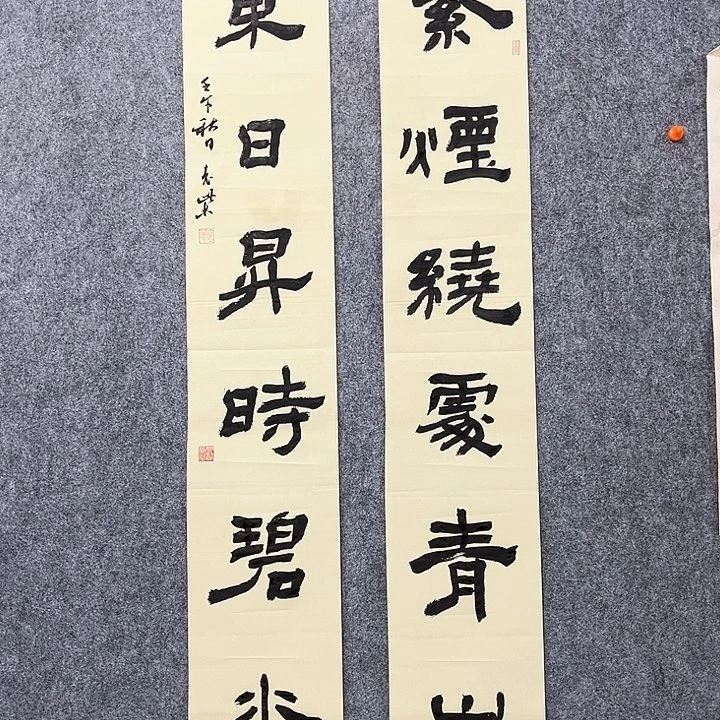 紫煙繞處青
東日昇時碧
壬午秋日